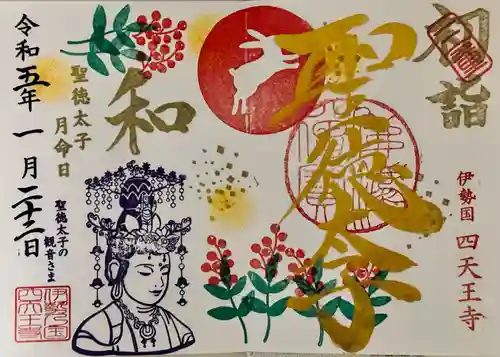 初詣
伊勢国 四天王寺
聖徳太子
和
聖徳太子
月命日
聖徳太子の
観音さま
令和五年 一月二十二日